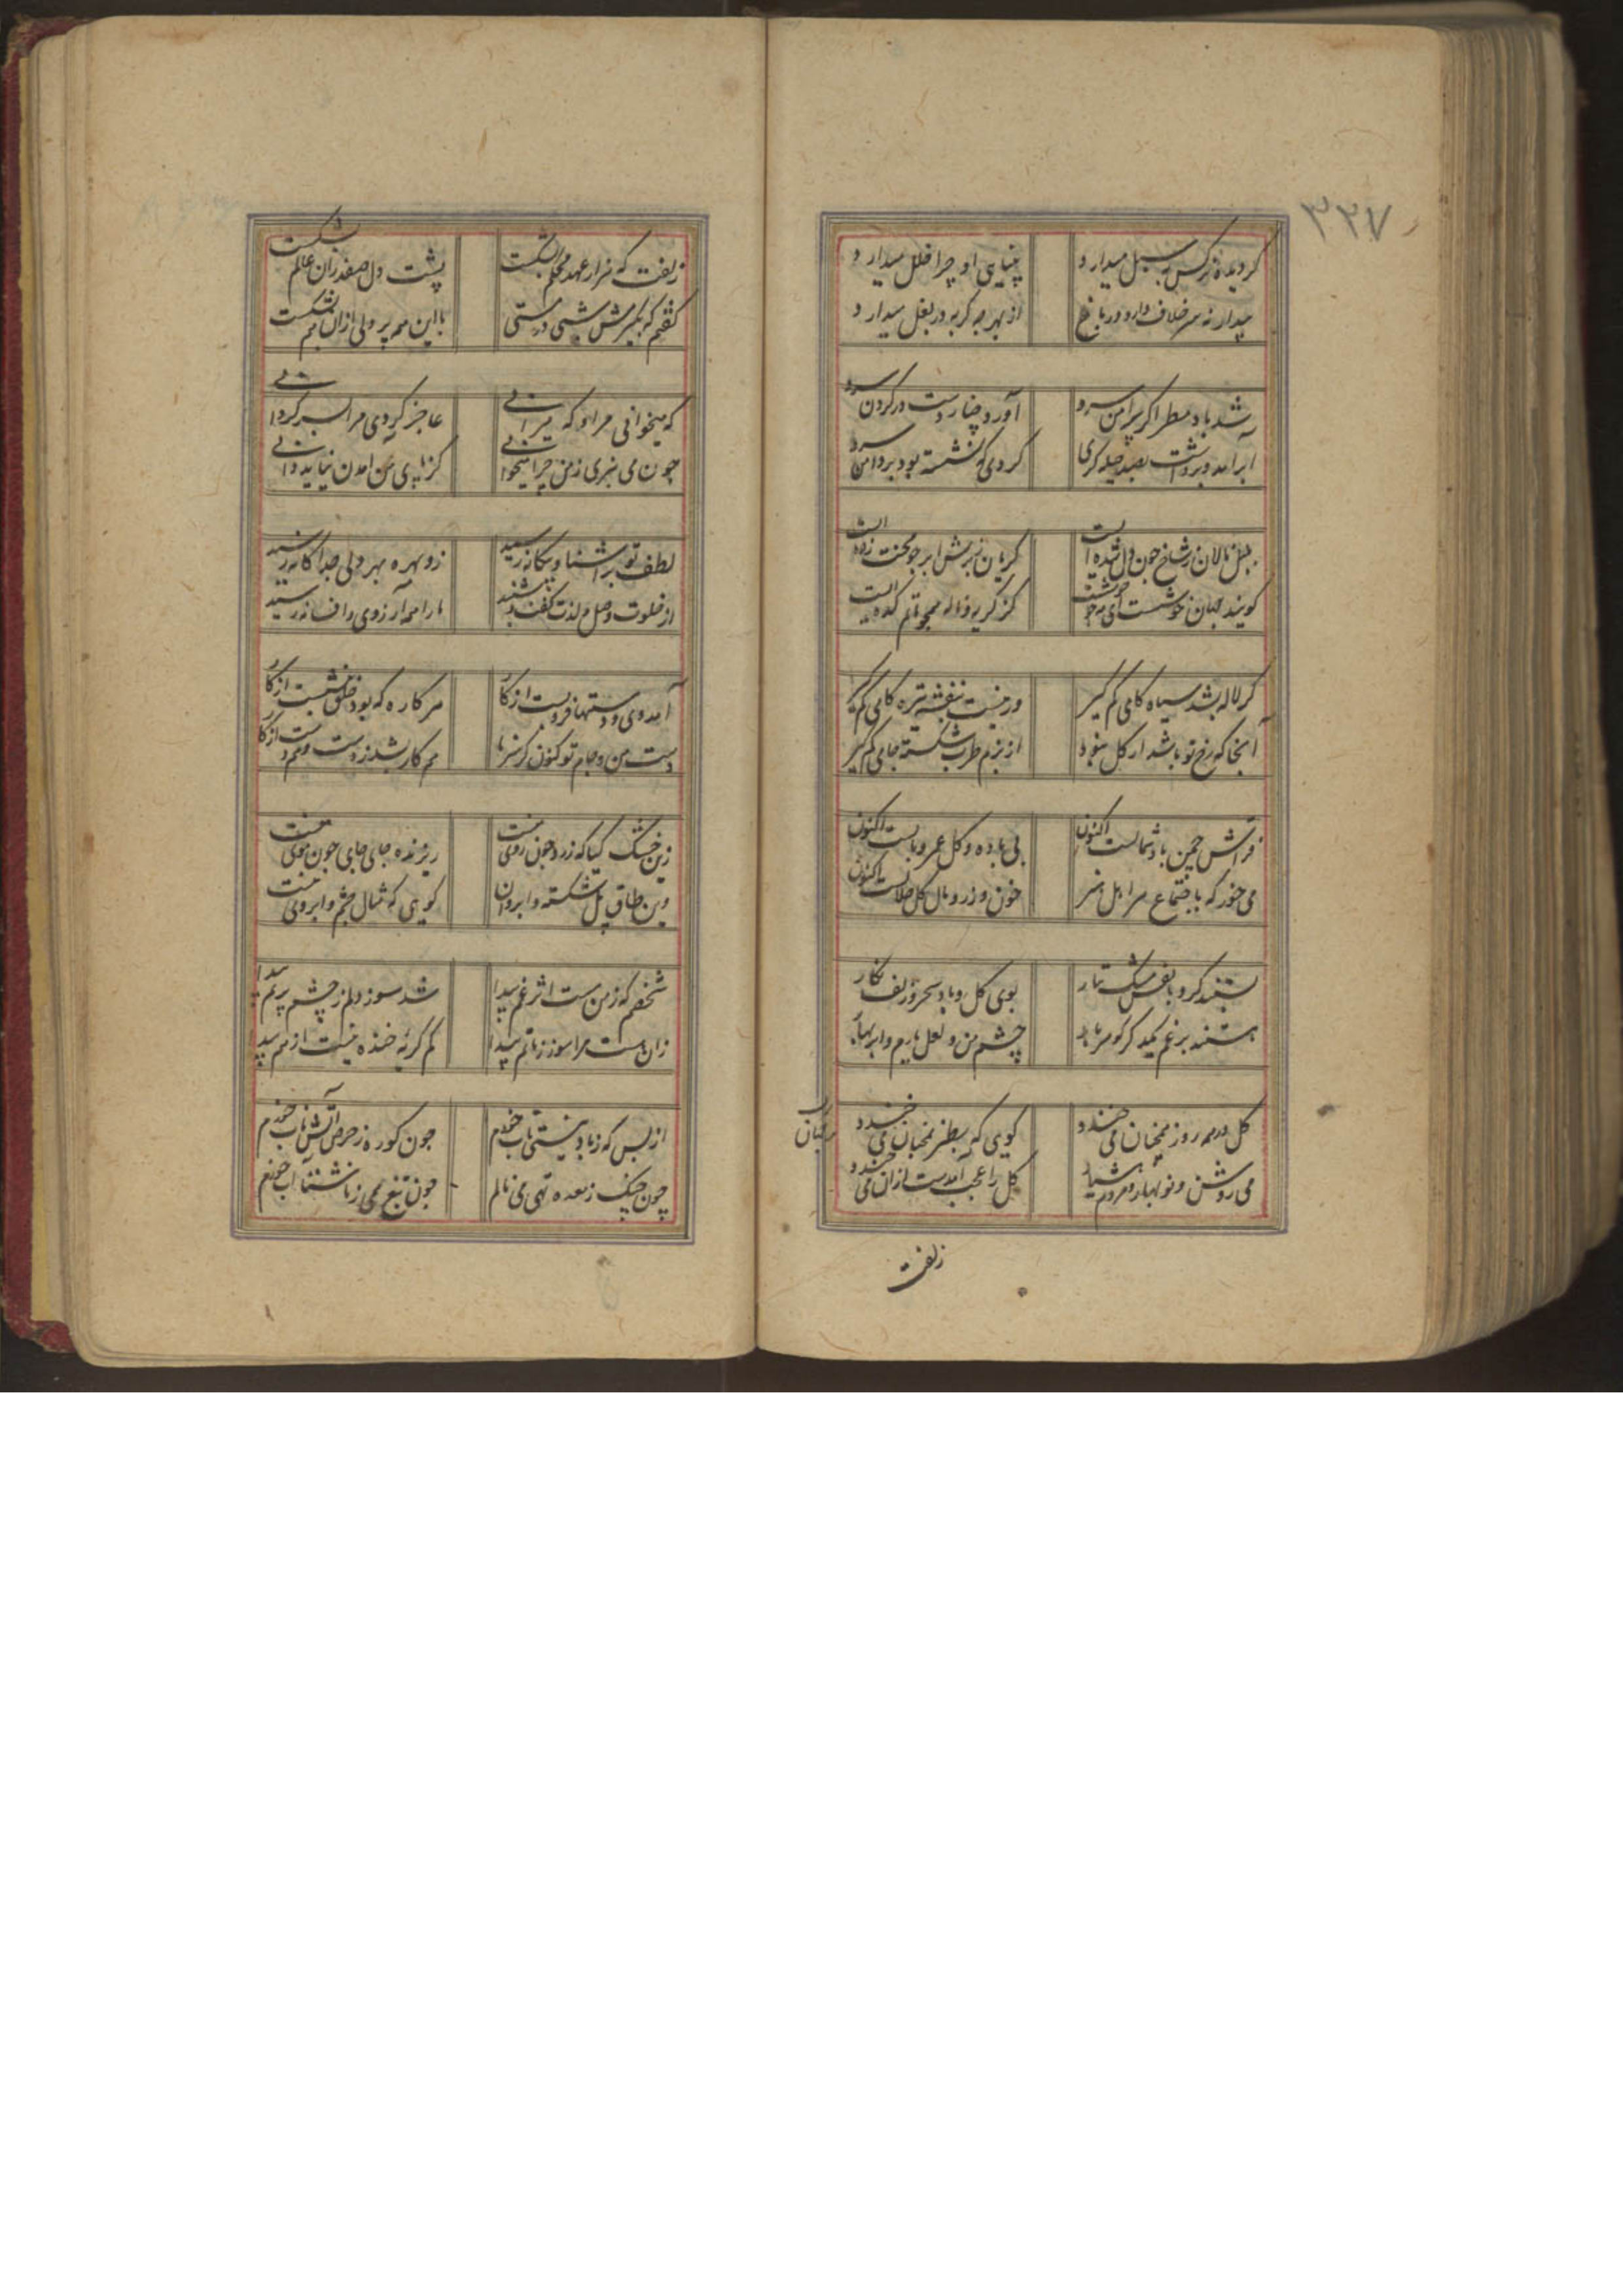 ۳۳۷
گر دیده نرگس سبل میدارد
بینایی او چرا خلل میدارد
بید ار نه سر خلاف دارد در باغ
از بهر چه گربه در بغل میدارد
شد باد مطرا گر پیراهن سرو
آورد چنار دست در گردن سرو
ابر آمد و برداشت بصد حیله گری
گردی که نشسته بود بر دامن سرو
بلبل نالان ز شاخ چون دل شده ایست
گریان ز برش ابر چو محنت زده ایست
گویند جهان خوشست ای
کز گریه و ناله همچو ماتم کده ایست
گر لاله بشد سیاه کامی کم گیر
ور نیست بنفشه تیره کامی کم گیر
آنجا که رخ تو باشد ار گل نبود
از بزم طرب شکسته جامی کم گیر
فراش چمن باد شمالست اکنون
بی باده و گل عمر وبالست اکنون
می خور که باجتماع مر اهل هنر
خون رز و مال گل حلالست اکنون
بستند گرو با نفس مشک تتار
بوی گل و باد سحر و زلف نگار
هستند بر غم گهر بار
چشم من و لعل یارم و ابر بهار
گل در همه روز همچنان می خندد
گویی که بطنز بر جهان می خندد
می روشن و نوبهار و مردم هشیار
گل را عجب آمدست از آن می خندد
زلفت
زلفت که هزار عهد محکم بشکست
پشت دل صفدران عالم بشکست
گفتم که بگیرمش شبی در مستی
با این همه پر دلی از آن هم بشکست
که میخوانی مرا و که میرانی
عاجز کردی مرا ز سرگردانی
چون می نبری ز من چرا میخوانی
کز پای من آمدن نیاید دانی
لطف تو بر آشنا و بیگانه رسید
زو بهره بهر دلی جداگانه رسید
از خلوت وصل و لذت گفت و شنید
ما را همه آرزوی و افسانه رسید
آمد دی و دستها فرو بست از کار
هر کاره که بود خلق بنشست از کار
دست من و جام تو کنون کز سرما
هم کار بشد ز دست و هم دست از کار
زین خشک گیا که زرد چون روی منست
ریزنده جای جای چون موی منست
وین طاق پل شکسته و آب روان
گویی که مثال چشم و ابروی منست
شخصم که ز من هست اثر غم پیدا
شد سوز دلم ز چشم پر نم پیدا
زان هست مرا سوز ز ماتم پیدا
کم گریه ز خنده نیست از هم پیدا
از بس که ز باد نیستی تاب خورم
چون کوره ز حرص آتش ناب خورم
چون چنگ ز معده تهی می نالم
چون تیغ همی ز ناشتا آب خورم